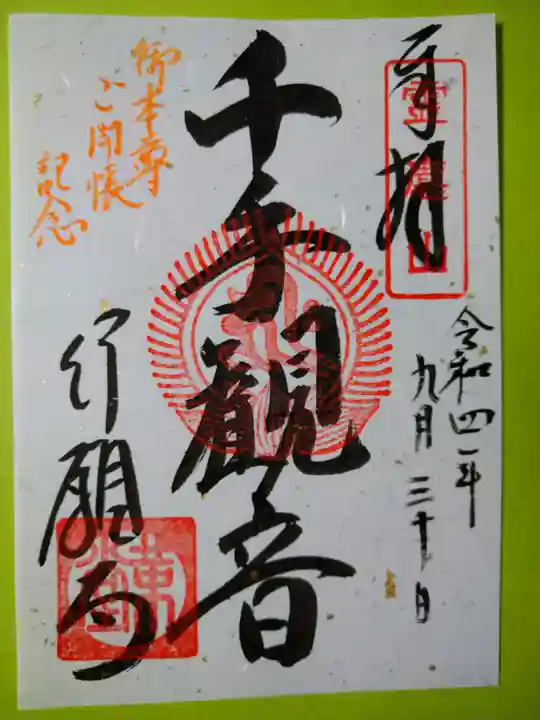 奉拝
霊麀山
令和四年
九月三十日
千手観音
御本尊
ご開帳
記念
行願寺
革堂